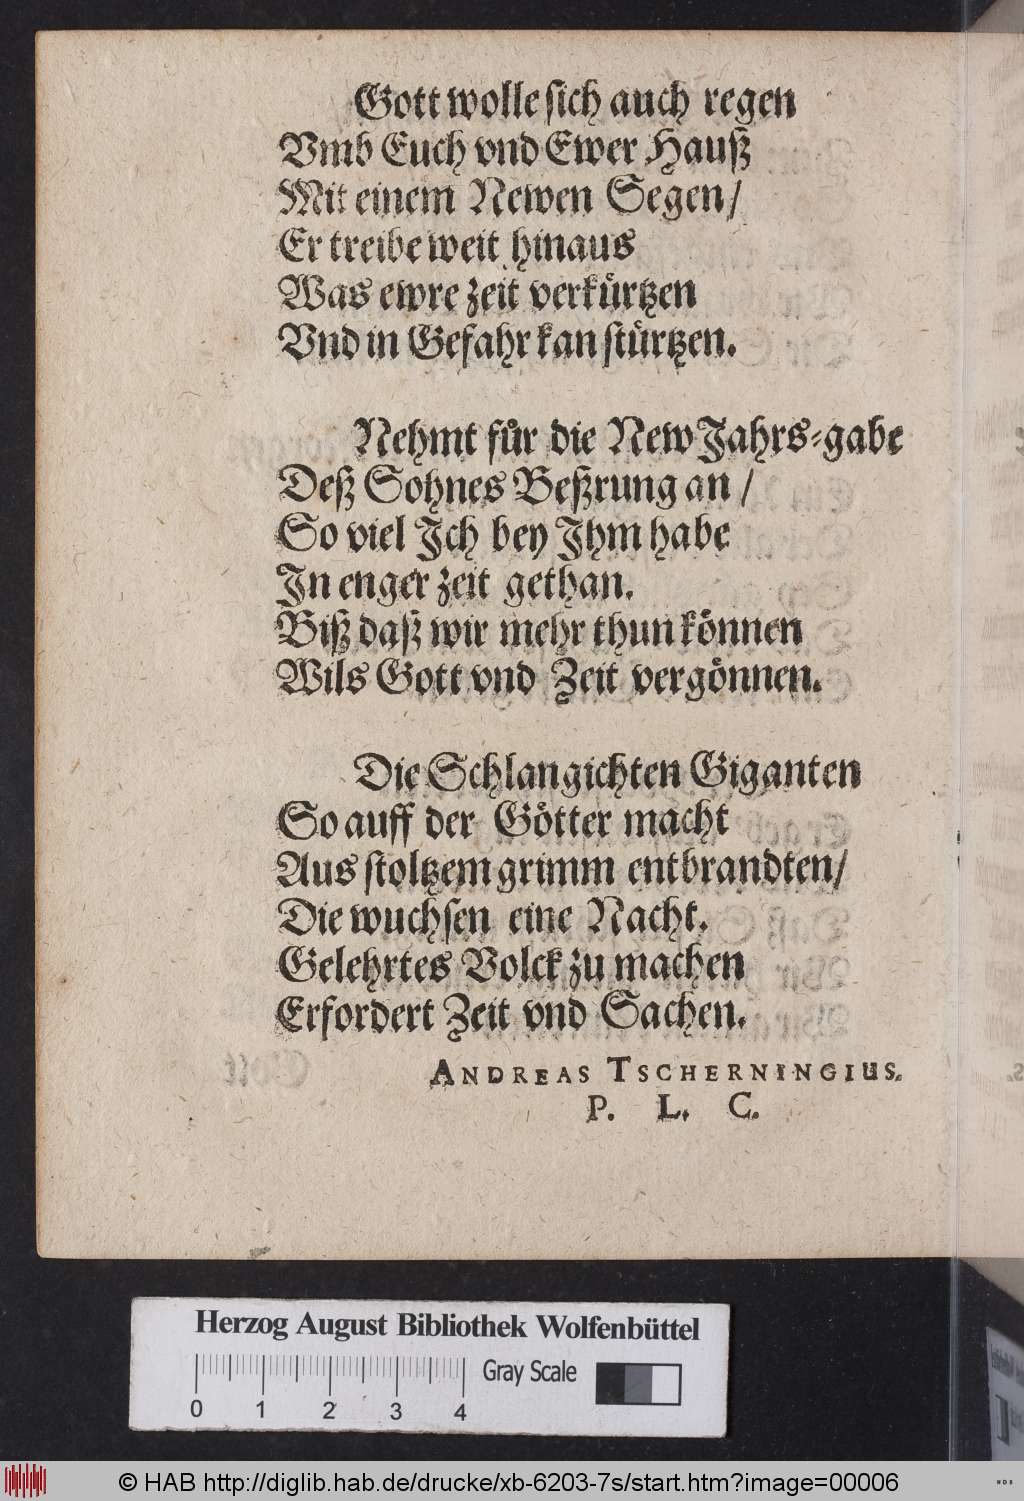 Gott wolle sich auch regen
Vmb Euch vnd Ewer Hauß
Mit einem Newen Segen/
Er treibe weit hinaus
Was ewre zeit verkürtzen
Vnd in Gefahr kan stürtzen.
Nehmt für die New Jahrs-gabe
Deß Sohnes Beßrung an /
So viel Ich bey Ihm habe
In enger zeit gethan.
Biß daß wir mehr thun können
Wils Gott vnd Zeit vergönnen.
Die Schlangichten Giganten
So auff der Götter macht
Aus stoltzem grimm entbrandten/
Die wuchsen eine Nacht.
Gelehrtes Volck zu machen
Erfordert Zeit vnd Sachen.
ANDREAS TSCHERNINGIUS.
P. L. C.
Herzog August Bibliothek Wolfenbüttel
Gray Scale
0 1 2 3 4
© HAB http://diglib.hab.de/drucke/xb-6203-7s/start.htm?image=00006